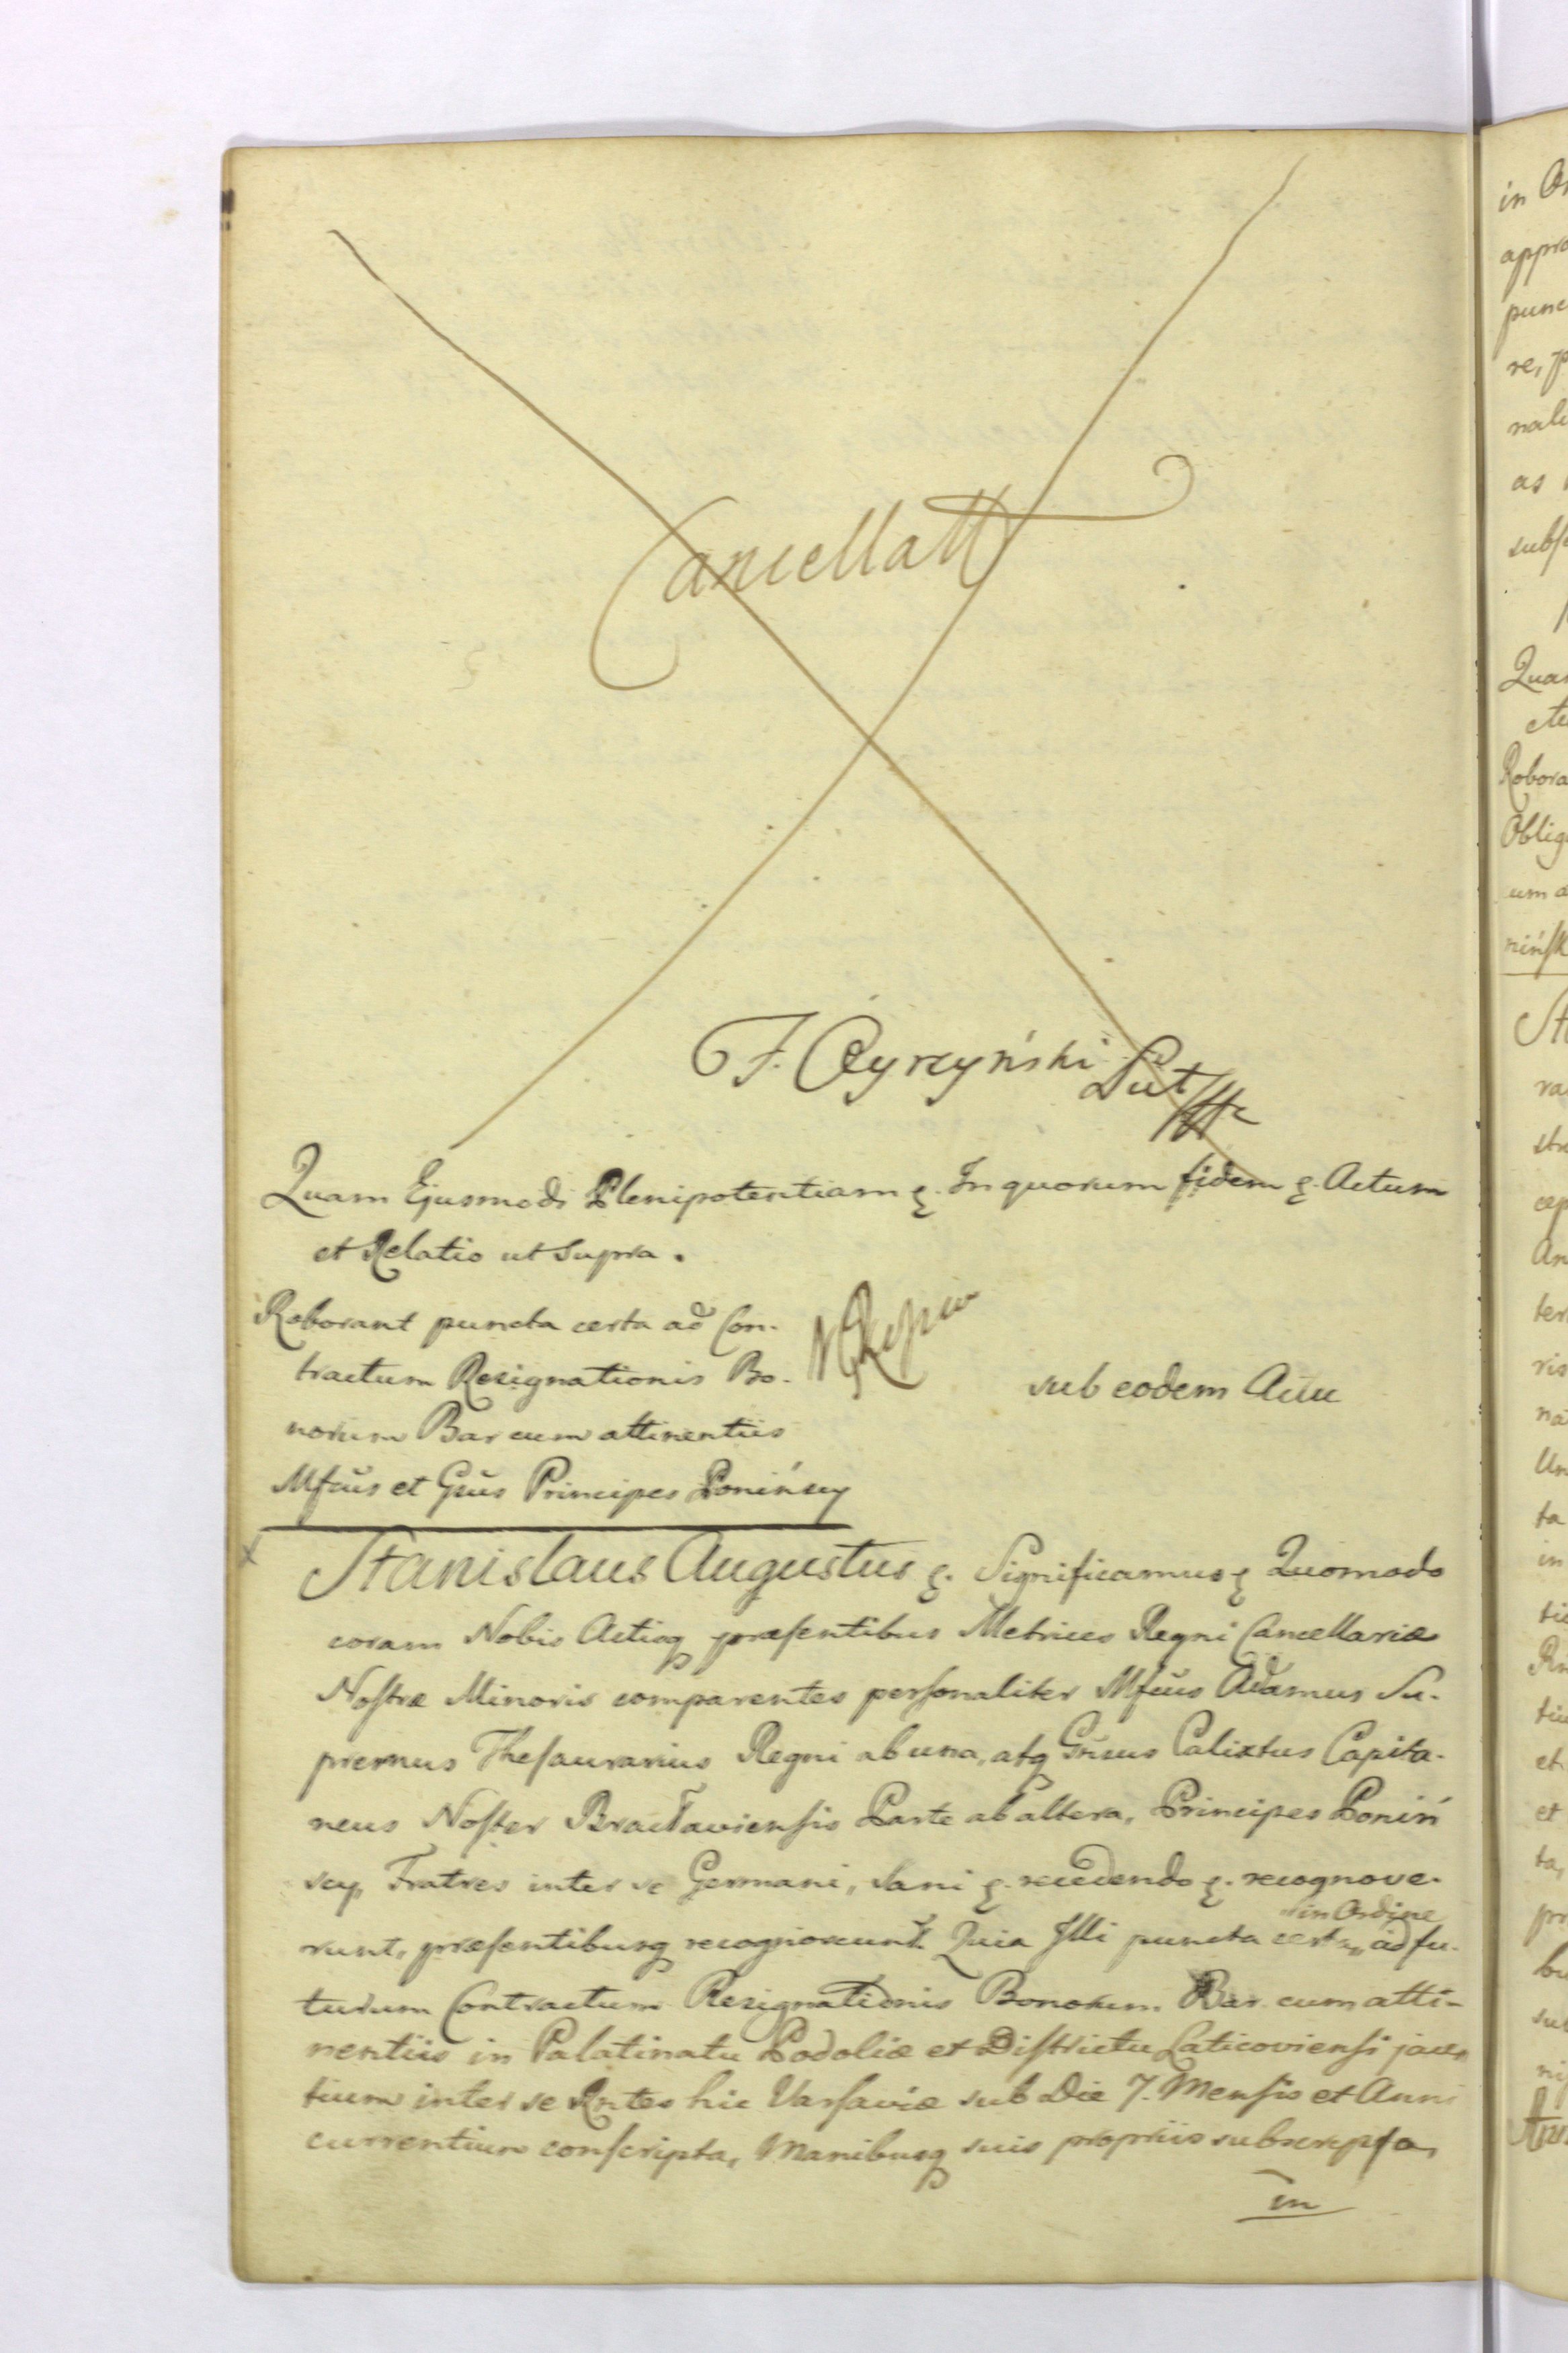 Cancellatt
F. Cyrzyński
Quam Ejusmodi Plenipotentiam ę. In quorum fidem ę. Actum
et Relatio ut Supra.
Roborant puncta certa ad Con-
tractum Resignationis Bo-
norum Bar cum attinentiis
Mfcus et Gsus Principes Poninscy
sub eodem Actu
Stanislaus Augustus ę. Significamus ę Quomodo
coram Nobis Actisq præsentibus Metrices Regni Cancellariæ
Nostræ Minoris comparentes personaliter Mfcus Adamus Su-
premus Thesaurarius Regni ab una, atq Gnsus Calixtus Capita-
neus Noster Bractaviensis Parte ab altera, Principes Poniń
scy, Fratres inter se Germani, sani ę. recedendo ę. recognove-
runt, præsentibusq recognoscunt. Quia Illi puncta certa, in Ordine ad fu-
turum Contractum Resignationis Bonorum Bar cum atti-
nentiis in Palatinatu Podoliæ et Districtu Laticoviensi jacen
tium inter se Rntes hic Varsaviæ sub Die 7. Mensis et Anni
currentium conscripta, Manibusq suis propriis subscripta,
in
in
appro
punc
re,
nali
as
subs
Qua
Robora
Oblig
um
ninsk
St
ra
cep
An
ter
ris
na
Un
ta
in
et
et
ta,